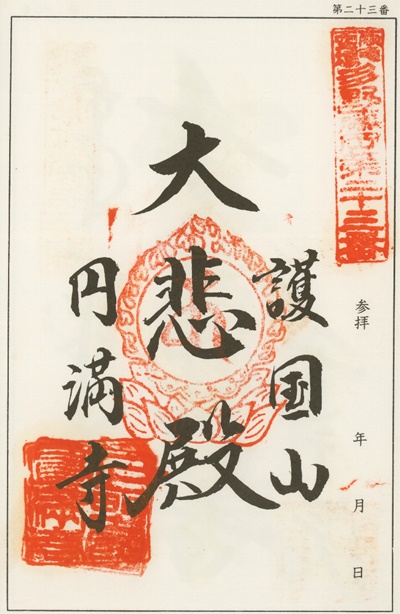 第二十三番
第二十三番
参拝　年　月　日
護国山
大悲殿
円満寺